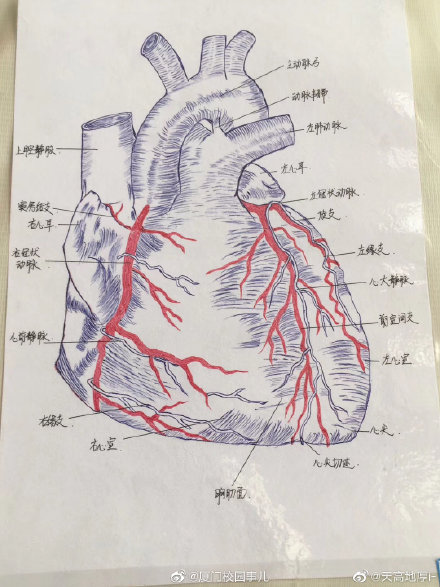 主动脉弓
动脉韧带
左肺动脉
上腔静脉
左心耳
窦房结支
左冠状动脉
右心耳
旋支
右冠状
动脉
左缘支
心大静脉
前室间支
心前静脉
左心室
右缘支
心尖
右心室
心尖切迹
胸肋面
@厦门校园事儿